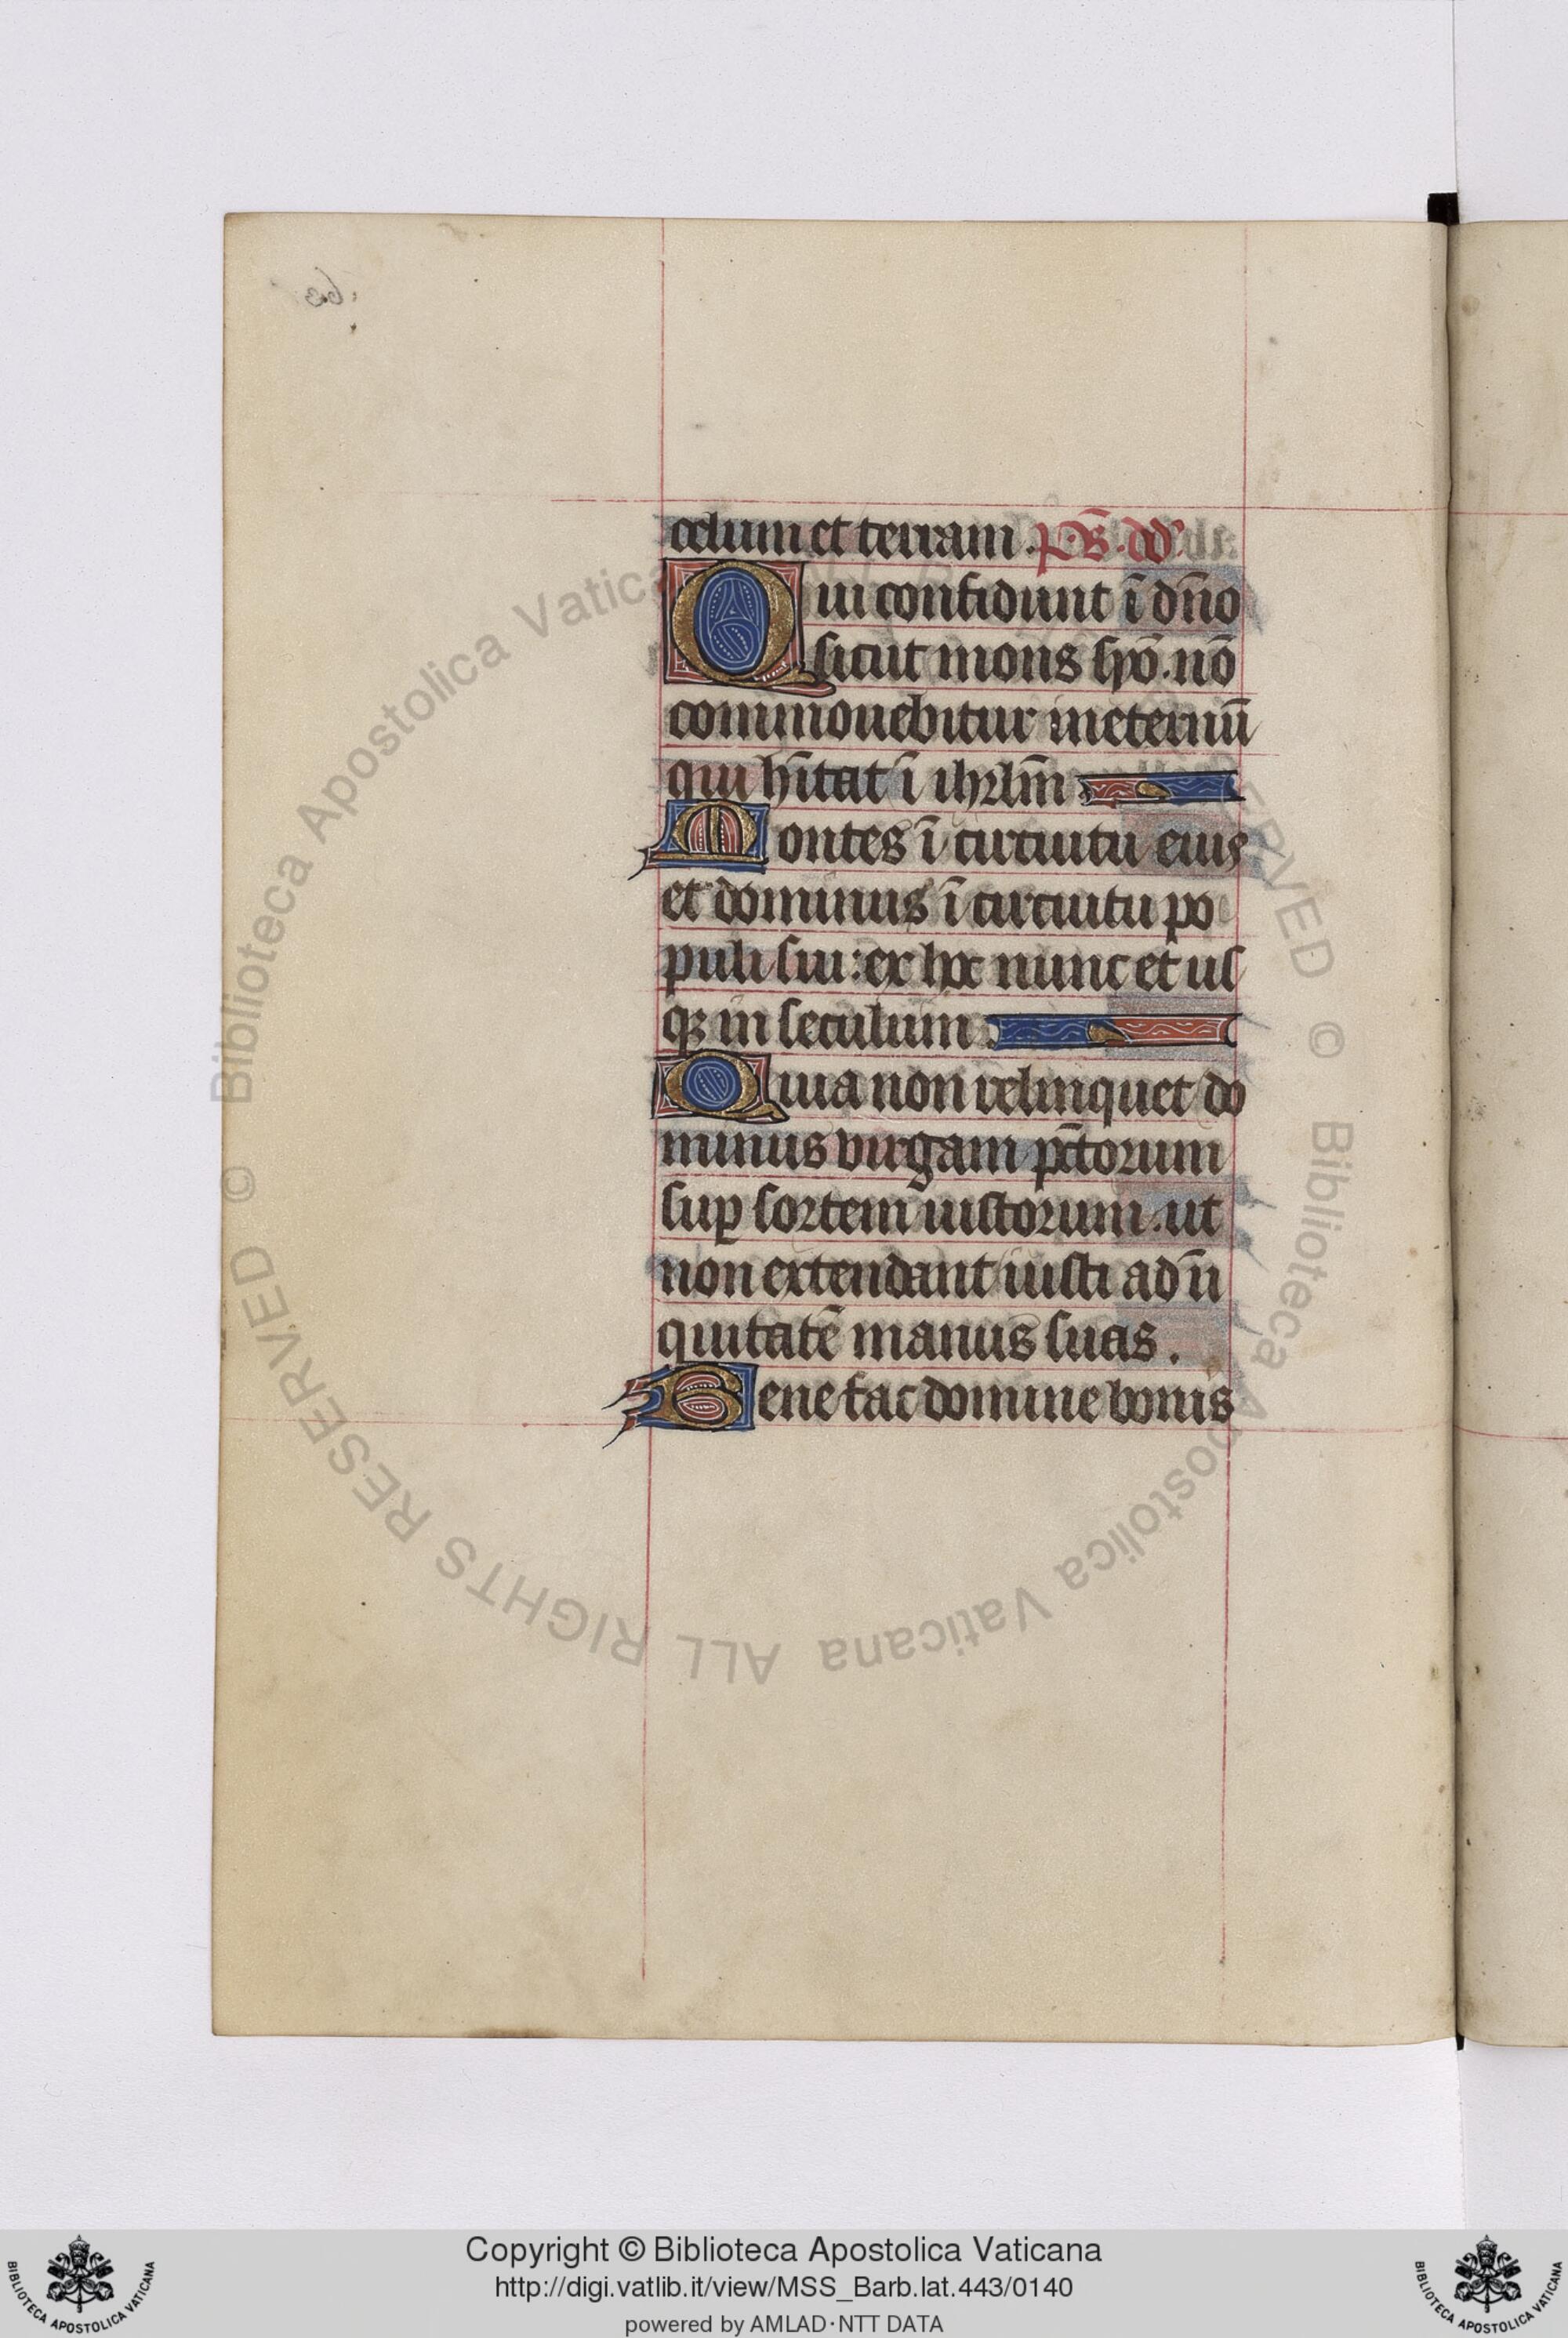 celum et terram. Ps. dd
Qui confidunt ī dn̄o
sicut mons syō. nō
commouebitur in eternū
qui hītat ī ihrlm̄
Montes ī circuitu eius
et dominus ī circuitu po
puli sui: ex hoc nunc et us
qꝫ in seculum.
Quia non relinquet do
minus virgam pc̄torum
suꝑ sortem iustorum. ut
non extendant iusti ad īi
quitatē manus suas.
Bene fac domine bonis
© Biblioteca Apostolica Vaticana ALL RIGHTS RESERVED
Copyright © Biblioteca Apostolica Vaticana
http://digi.vatlib.it/view/MSS_Barb.lat.443/0140
powered by AMLAD·NTT DATA
BIBLIOTECA APOSTOLICA VATICANA
BIBLIOTECA APOSTOLICA VATICANA